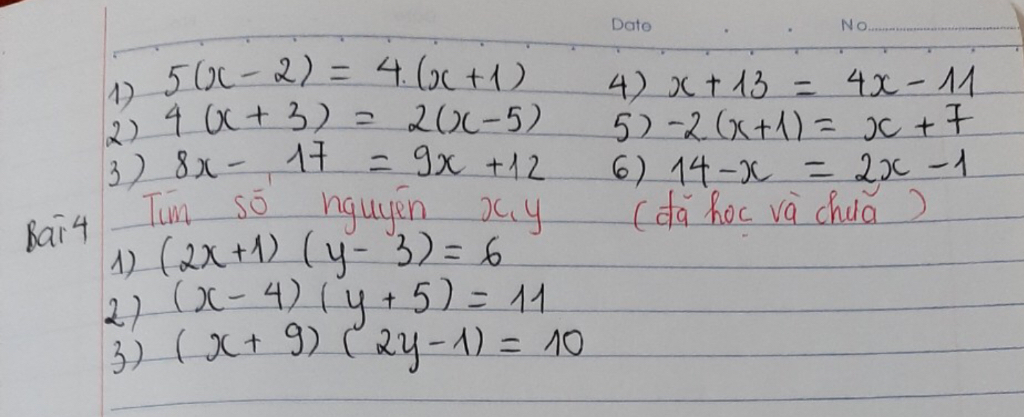 Date No
1) 5(x - 2) = 4.(x + 1) 4) x + 13 = 4x - 11
2) 4 (x + 3) = 2(x - 5) 5) -2(x+1) = x + 7
3) 8x - 17 = 9x + 12 6) 14 - x = 2x - 1
Bài 4 Tìm số nguyên x, y (đã học và chữa)
1) (2x+1) (y - 3) = 6
2) (x - 4) (y + 5) = 11
3) (x + 9) (2y - 1) = 10